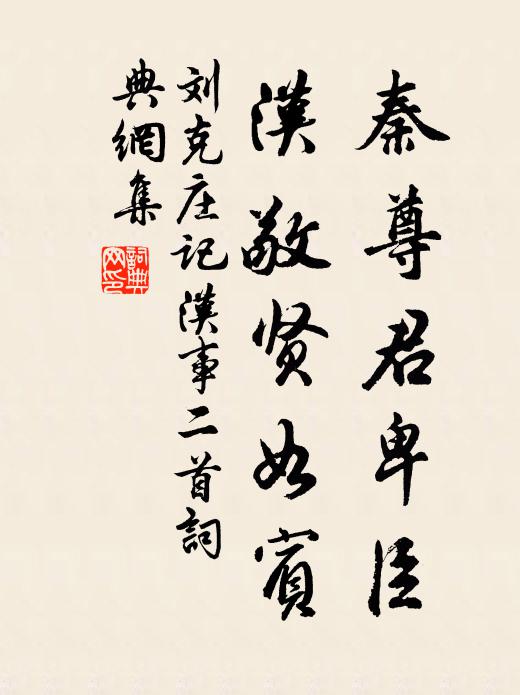 秦尊君卑臣
漢敬贤如賓
刘克庄记漢事二首詞
典網集
詞典
网印